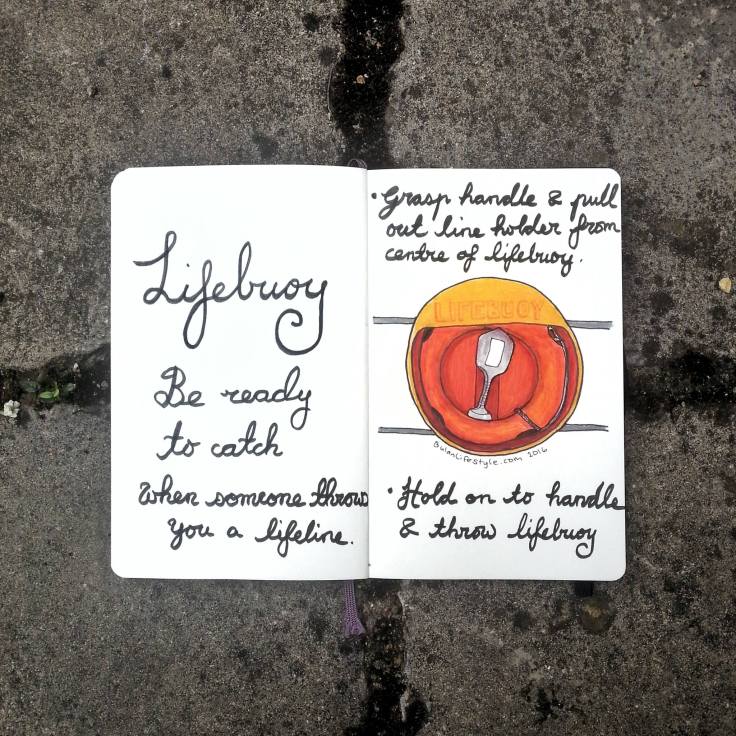 Lifebuoy
Be ready
to catch
When someone throws
you a lifeline.
• Grasp handle & pull
out line holder from
centre of lifebuoy.
LIFEBUOY
BulanLifestyle.com 2016
• Hold on to handle
& throw lifebuoy